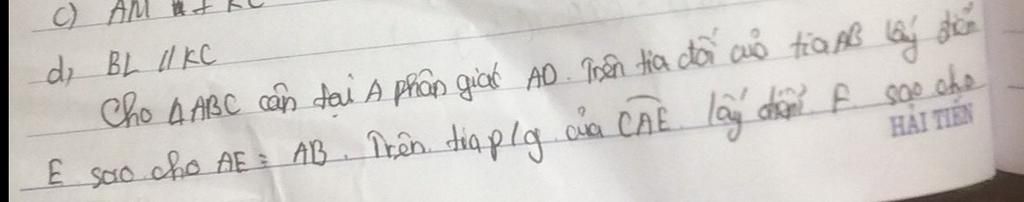 c) AM
d) BL // KC
Cho Δ ABC cân tại A phân giác AD. Trên tia đối của tia AB lấy điểm
E sao cho AE = AB. Trên tia p/g của CAE lấy điểm F sao cho
HẢI TIẾN